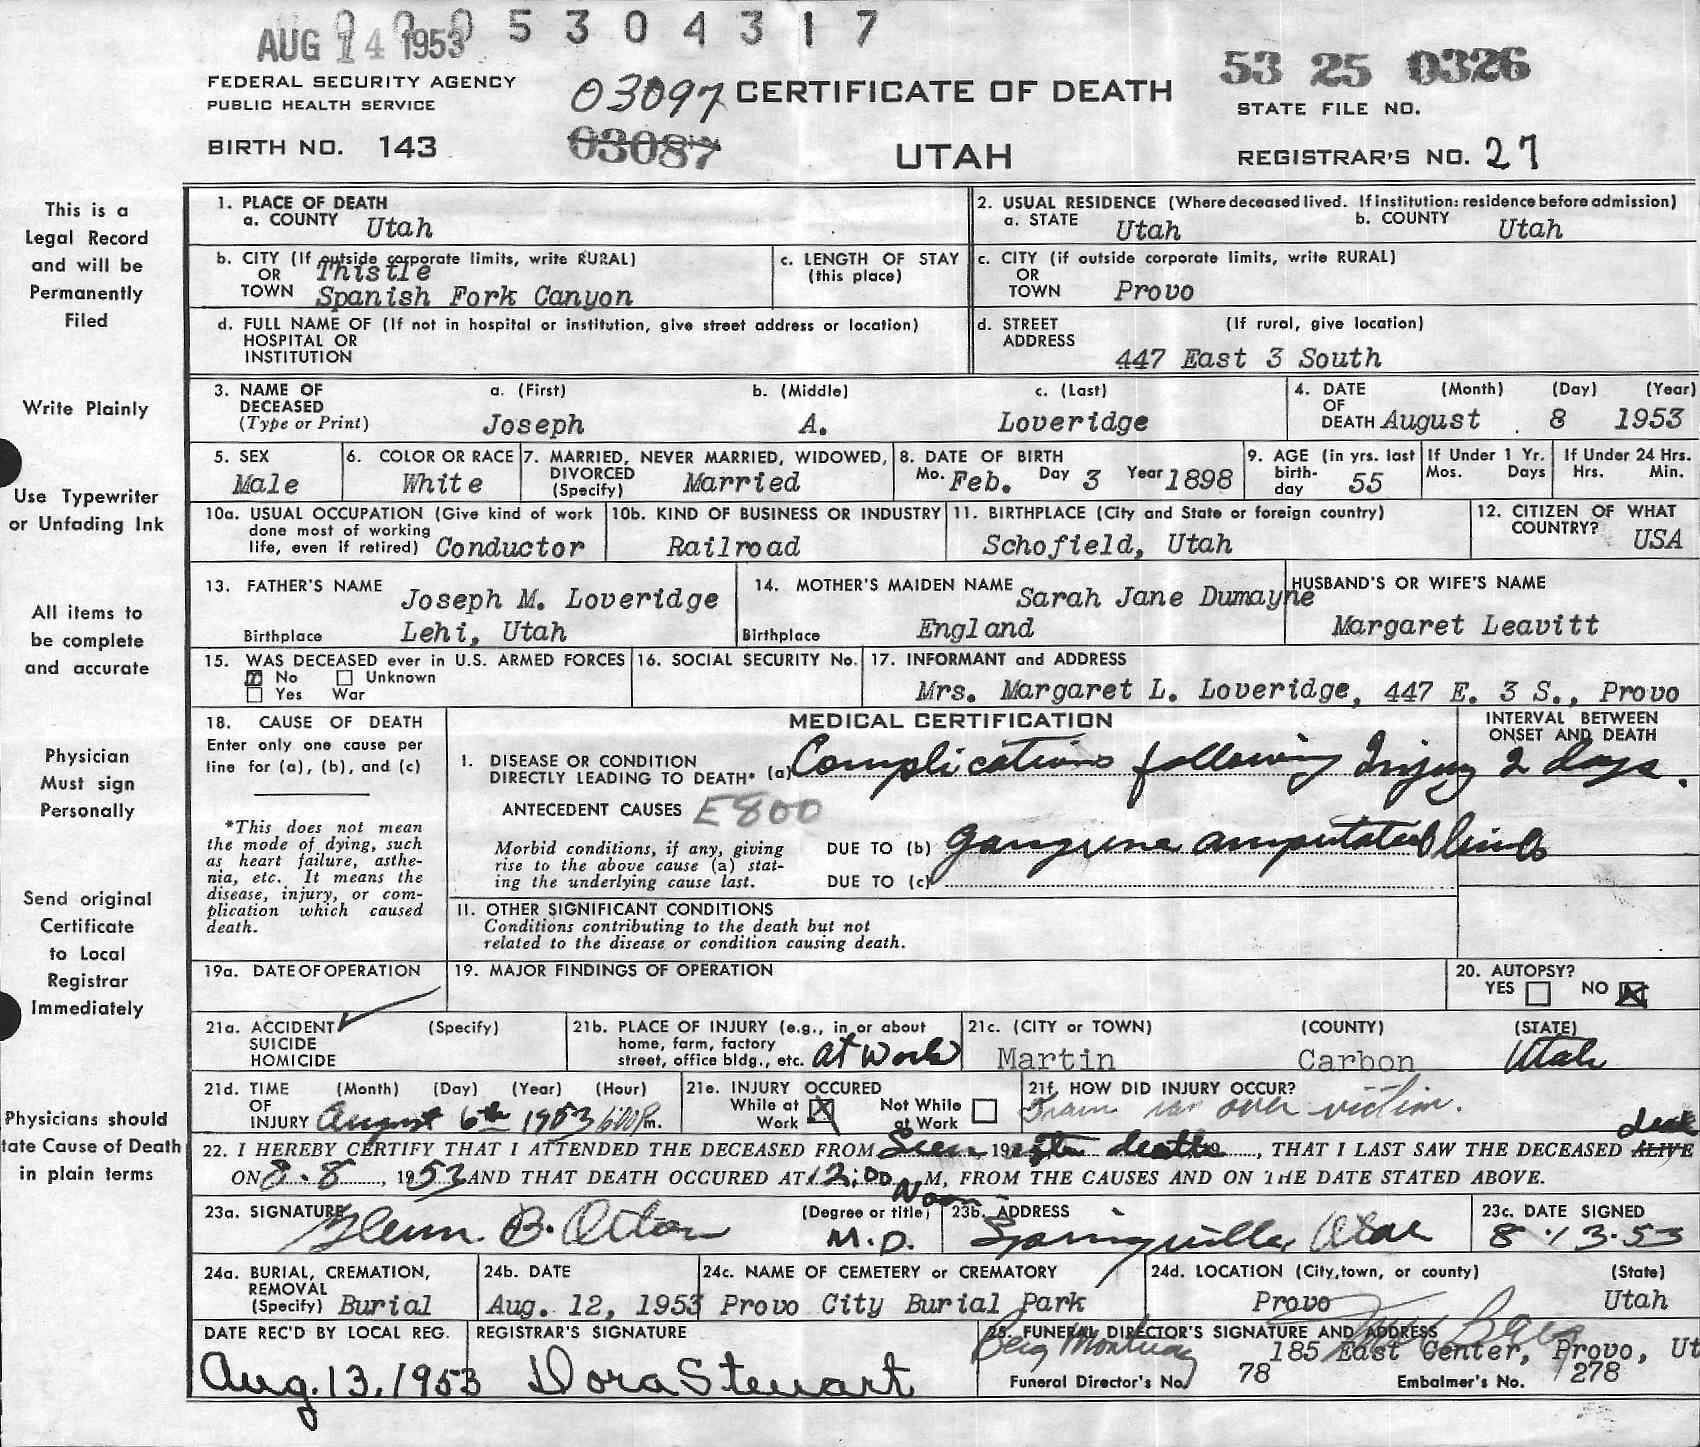 AUG 14 1953 5 3 0 4 3 1 7
FEDERAL SECURITY AGENCY
PUBLIC HEALTH SERVICE
BIRTH NO. 143
03097
03087
CERTIFICATE OF DEATH
UTAH
53 25 0326
STATE FILE NO.
REGISTRAR'S NO. 27
This is a
Legal Record
and will be
Permanently
Filed
Write Plainly
Use Typewriter
or Unfading Ink
All items to
be complete
and accurate
Physician
Must sign
Personally
Send original
Certificate
to Local
Registrar
Immediately
Physicians should
tate Cause of Death
in plain terms
1. PLACE OF DEATH
a. COUNTY Utah
2. USUAL RESIDENCE (Where deceased lived. If institution: residence before admission)
a. STATE Utah b. COUNTY Utah
b. CITY (If outside corporate limits, write RURAL)
OR
TOWN Thistle
Spanish Fork Canyon
c. LENGTH OF STAY
(this place)
c. CITY (if outside corporate limits, write RURAL)
OR
TOWN Provo
d. FULL NAME OF (If not in hospital or institution, give street address or location)
HOSPITAL OR
INSTITUTION
d. STREET (If rural, give location)
ADDRESS
447 East 3 South
3. NAME OF DECEASED (Type or Print)
a. (First) b. (Middle) c. (Last)
Joseph A. Loveridge
4. DATE OF DEATH (Month) (Day) (Year)
August 8 1953
5. SEX
Male
6. COLOR OR RACE
White
7. MARRIED, NEVER MARRIED, WIDOWED,
DIVORCED
(Specify) Married
8. DATE OF BIRTH
Mo. Feb. Day 3 Year 1898
9. AGE (in yrs. last
birth-
day 55
If Under 1 Yr.
Mos. Days
If Under 24 Hrs.
Hrs. Min.
10a. USUAL OCCUPATION (Give kind of work
done most of working
life, even if retired) Conductor
10b. KIND OF BUSINESS OR INDUSTRY
Railroad
11. BIRTHPLACE (City and State or foreign country)
Schofield, Utah
12. CITIZEN OF WHAT
COUNTRY? USA
13. FATHER'S NAME
Joseph M. Loveridge
Birthplace Lehi, Utah
14. MOTHER'S MAIDEN NAME Sarah Jane Dumayne
Birthplace England
HUSBAND'S OR WIFE'S NAME
Margaret Leavitt
15. WAS DECEASED ever in U.S. ARMED FORCES
No Unknown
Yes War
16. SOCIAL SECURITY No.
17. INFORMANT and ADDRESS
Mrs. Margaret L. Loveridge, 447 E. 3 S., Provo
18. CAUSE OF DEATH
Enter only one cause per
line for (a), (b), and (c)
*This does not mean
the mode of dying, such
as heart failure, asthe-
nia, etc. It means the
disease, injury, or com-
plication which caused
death.
MEDICAL CERTIFICATION
INTERVAL BETWEEN
ONSET AND DEATH
I. DISEASE OR CONDITION
DIRECTLY LEADING TO DEATH* (a) Complications following Injury 2 days.
ANTECEDENT CAUSES E800
Morbid conditions, if any, giving
rise to the above cause (a) stat-
ing the underlying cause last.
DUE TO (b) gangrene amputated limbs
DUE TO (c)
II. OTHER SIGNIFICANT CONDITIONS
Conditions contributing to the death but not
related to the disease or condition causing death.
19a. DATE OF OPERATION
19. MAJOR FINDINGS OF OPERATION
20. AUTOPSY?
YES NO
21a. ACCIDENT (Specify)
SUICIDE
HOMICIDE
21b. PLACE OF INJURY (e.g., in or about
home, farm, factory
street, office bldg., etc. at work
21c. (CITY or TOWN) (COUNTY) (STATE)
Martin Carbon Utah
21d. TIME (Month) (Day) (Year) (Hour)
OF
INJURY August 6th 1953 6:00 P m.
21e. INJURY OCCURED
While at
Work
Not While
at Work
21f. HOW DID INJURY OCCUR?
Train ran over victim.
22. I HEREBY CERTIFY THAT I ATTENDED THE DECEASED FROM Seen 19 after death 19, THAT I LAST SAW THE DECEASED ALIVE dead
ON 8-8, 1953 AND THAT DEATH OCCURED AT 12:00 M, FROM THE CAUSES AND ON THE DATE STATED ABOVE.
Noon
23a. SIGNATURE (Degree or title)
Glenn B. Orton M.D.
23b. ADDRESS
Springville, Utah
23c. DATE SIGNED
8-13-53
24a. BURIAL, CREMATION,
REMOVAL
(Specify) Burial
24b. DATE
Aug. 12, 1953
24c. NAME OF CEMETERY or CREMATORY
Provo City Burial Park
24d. LOCATION (City, town, or county) (State)
Provo Utah
DATE REC'D BY LOCAL REG.
Aug. 13, 1953
REGISTRAR'S SIGNATURE
Dora Stewart
25. FUNERAL DIRECTOR'S SIGNATURE AND ADDRESS
Berg Mortuary
185 East Center, Provo, Ut
Funeral Director's No. 78 Embalmer's No. 278